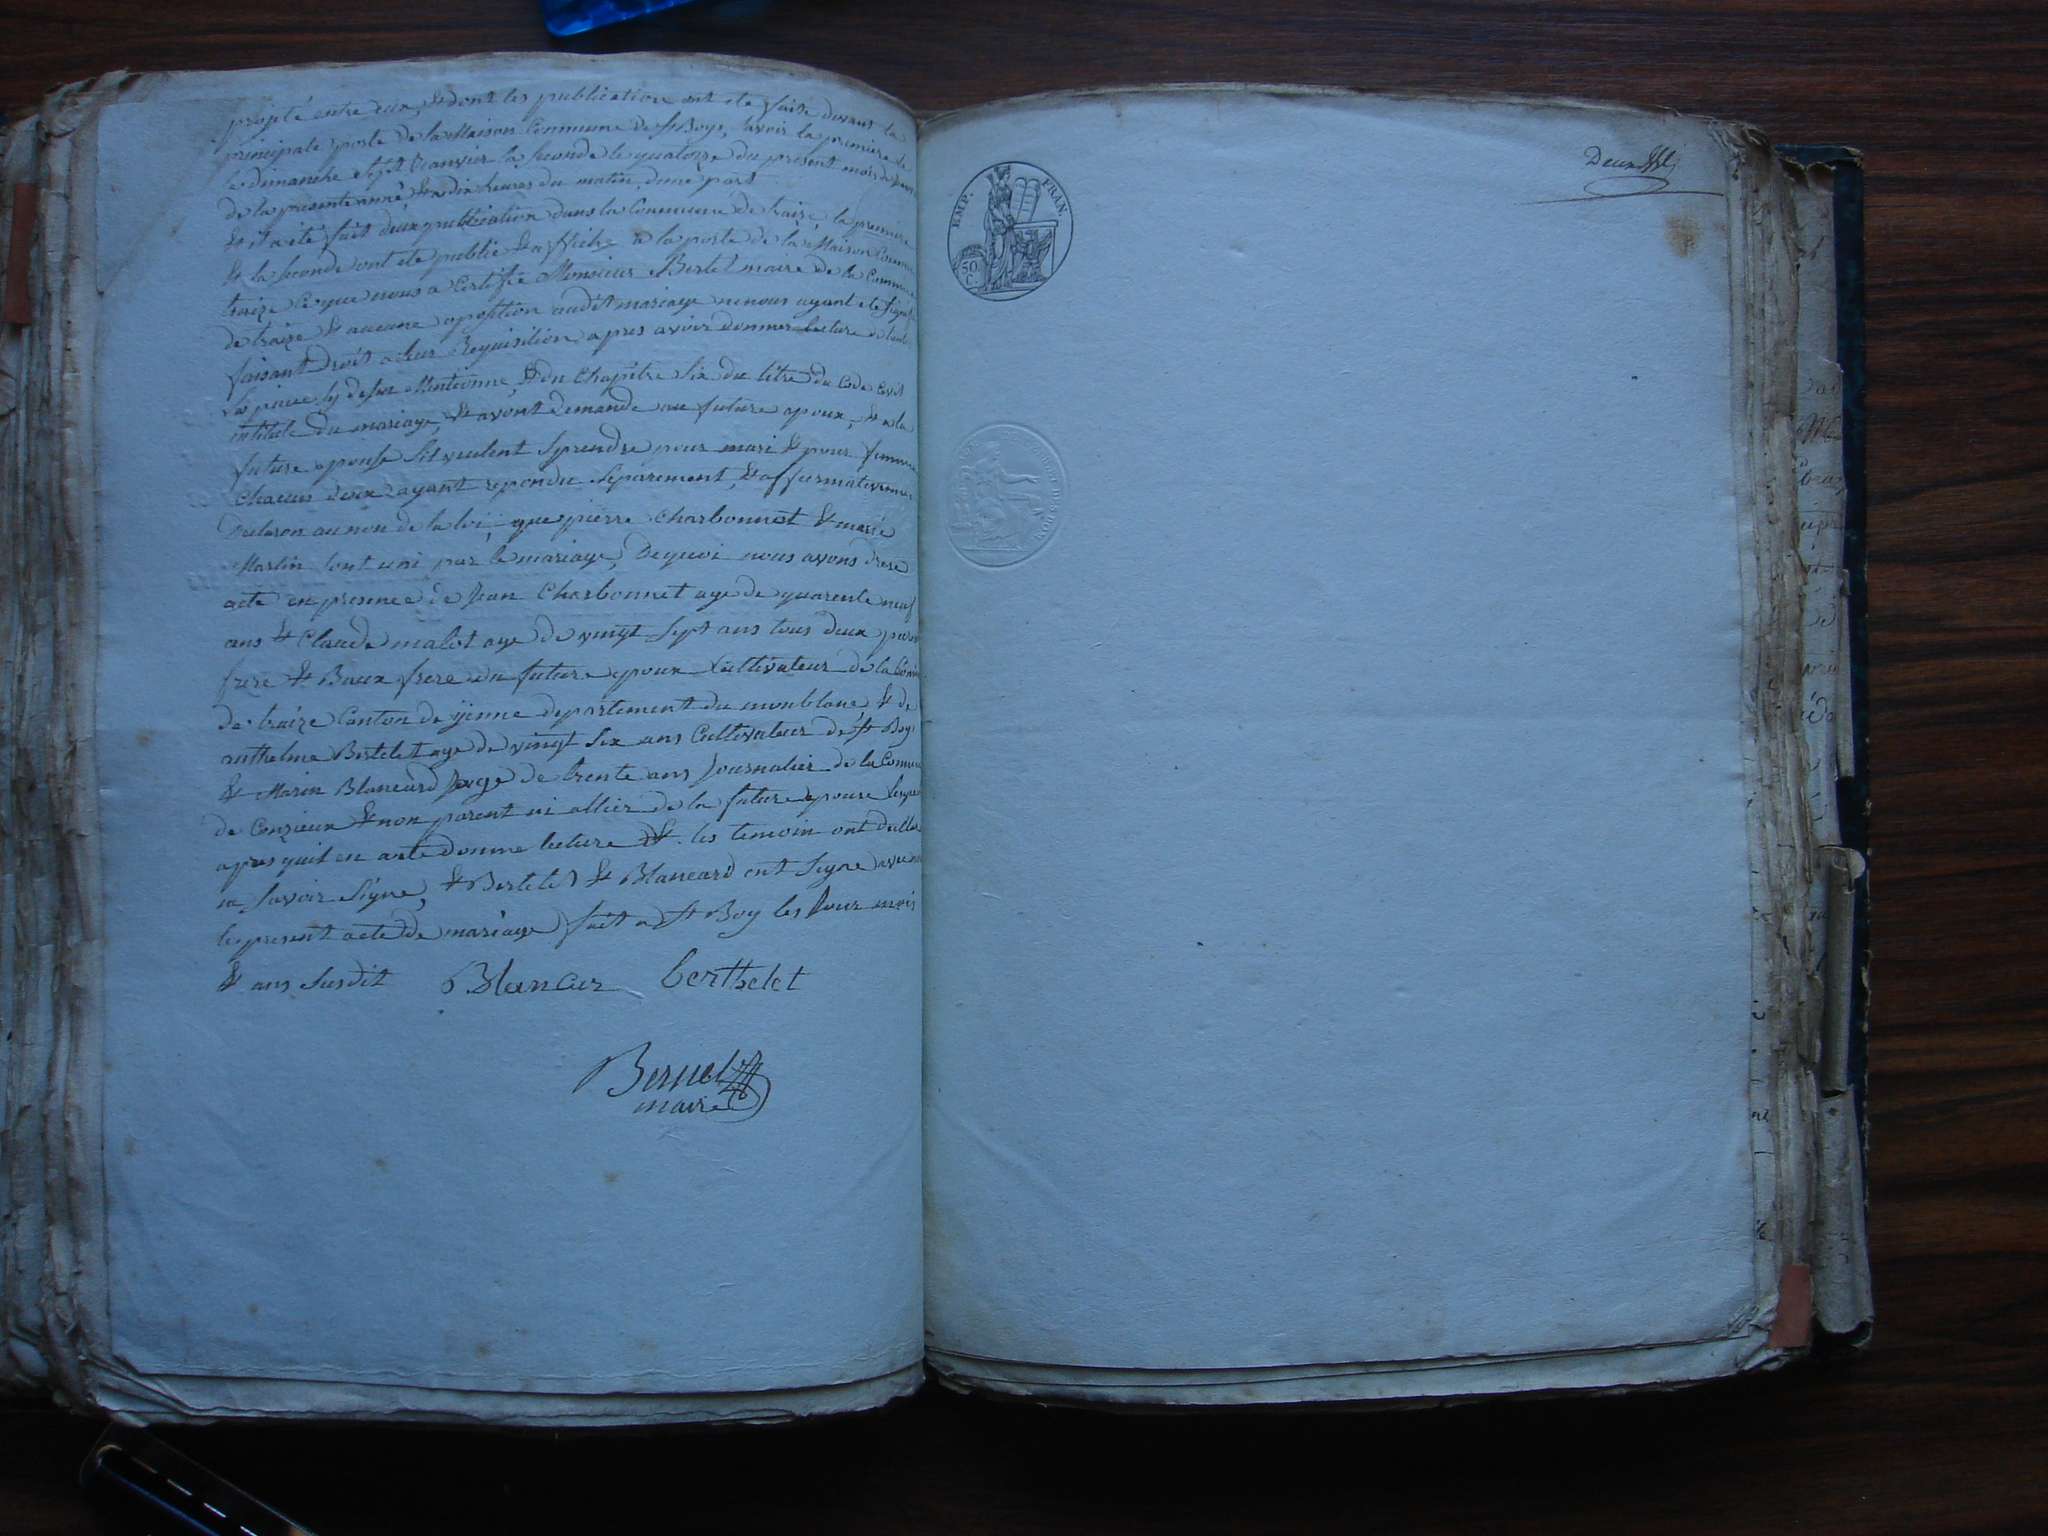 projeté entre eux, & dont les publication ont ete faite devant la
principale porte de la Maison Commune de St Boys, savoir la premiere le
le dimanche sept Janvier la seconde le quatorze du present mois de
de la presente anné & a dix heures du matin, d'une part
& il a été fait deux publication dans la Commune de traize, la premiere
& la seconde ont ete publie & affiche a la porte de la Maison Commune
traize ce que nous a Certifié Monsieur Bertet maire de la Commune
de traize & aucune oposition audit mariage ne nous ayant ete signifie
faisant droit a leur Requisition, apres avoir donner lecture de toutes
les piece cy dessus Mentionne, & du Chapitre Six du titre du Code Civil
intitule du mariage, & avont demande au future epoux, & a la
future epouse s'il veulent sprendre pour mari & pour femme
chacun deux ayant repondu Séparement & affirmativement
au nom de la loi, que pierre Charbonnet & marie
Martin sont uni par le mariage, De quoi nous avons drese
acte en presence de Jean Charbonnet age de quarente neuf
ans & Claude malot age de vingt Sept ans tous deux
frere & Baux frere du future epoux Cultivateur de la
de traize Canton de yenne departement du monblanc, & de
anthelme Bertelet age de vingt six ans Cultivateur de St Boys
& Marin Blancard age de trente ans Journalier de la Commune
de Conzieux & non parent ni allier de la future epouse
apres quil en a ete donne lecture & les temoin ont
ne savoir Signe, & Bertelet & Blancard ont Signe avec nous
le present acte de mariage fait a St Boy les Jour mois
& ans Susdit Blancar berthelet
Bernet
maire
Deux
EMP. FRAN.
50
C.